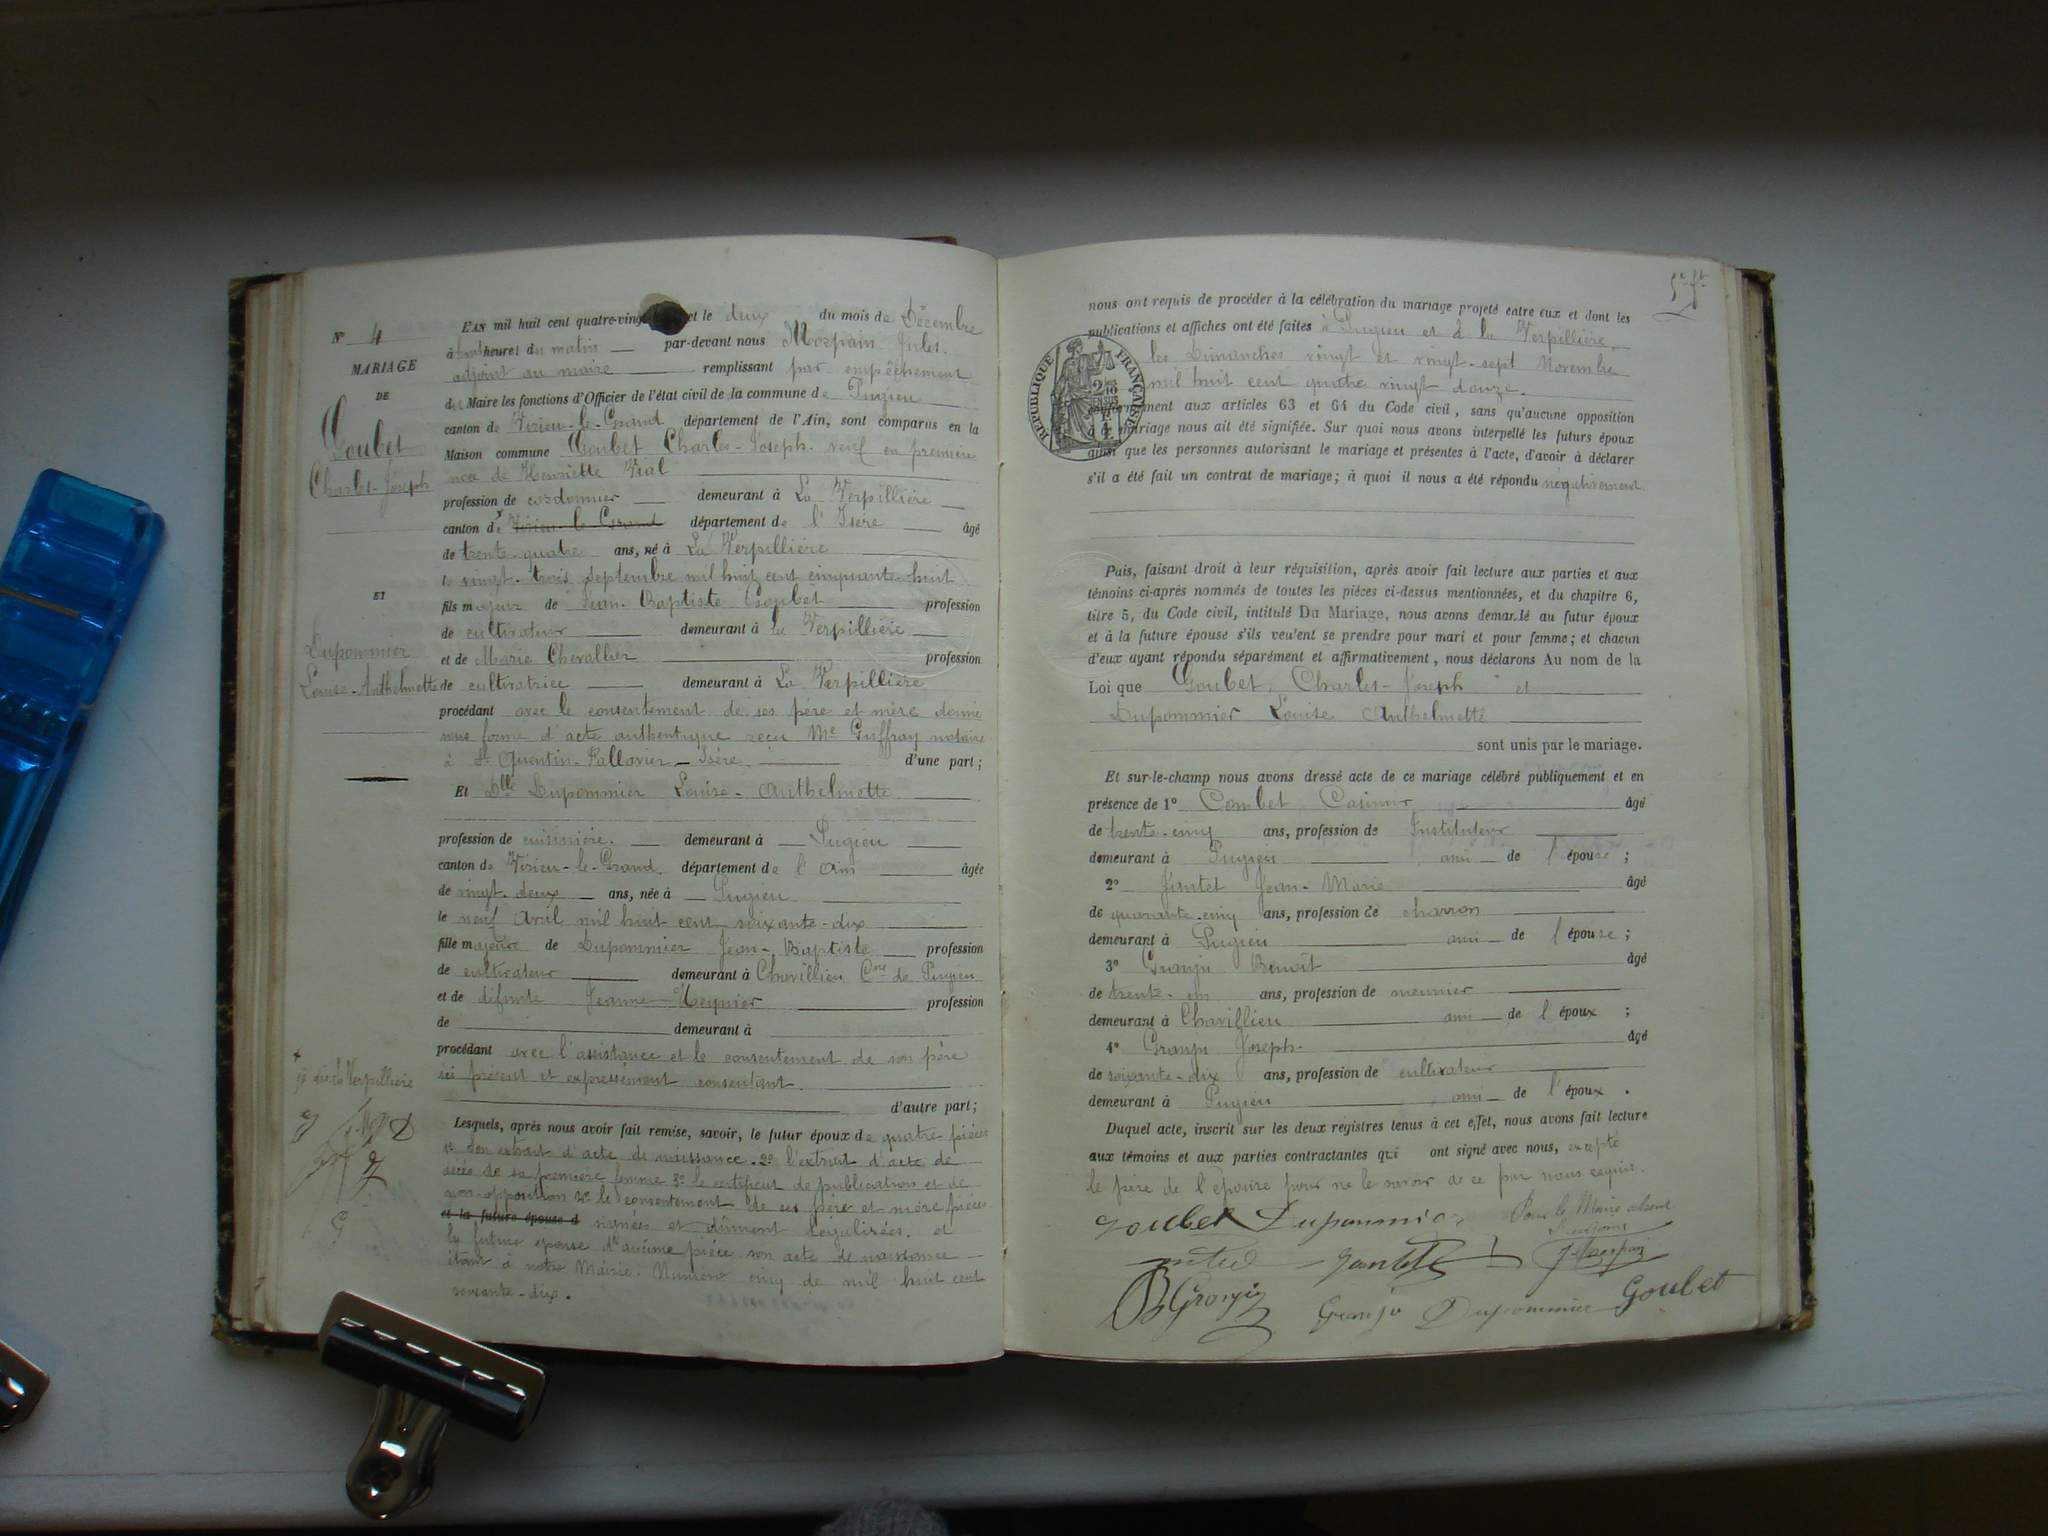 N° 4
MARIAGE
DE
Goubet
Charles-Joseph
ET
Dupommier
Louise-Anthelmette
L'AN mil huit cent quatre-ving et le deux du mois de Décembre
à huit heures du matin par-devant nous Morpain Jules.
adjoint au maire remplissant par empêchement
du Maire les fonctions d'Officier de l'état civil de la commune de Pugieu
canton de Virieu-le-Grand département de l'Ain, sont comparus en la
Maison commune Goubet Charles-Joseph. veuf en première
noce de Henriette Vial
profession de cordonnier demeurant à La Verpillière
canton de Virieu-le-Grand département de l'Isère âgé
de trente-quatre ans, né à La Verpillière
le vingt-trois Septembre mil huit cent cinquante-huit
fils majeur de Jean-Baptiste Goubet profession
de cultivateur demeurant à la Verpillière
et de Marie Chevallier profession
de cultivatrice demeurant à La Verpillière
procédant avec le consentement de ses père et mère donné
sous forme d'acte authentique reçu Me Guffray notaire
à St Quentin-Fallavier-Isère. d'une part;
Et Dlle Dupommier Louise-Anthelmette
profession de cuisinière. demeurant à Pugieu
canton de Virieu-le-Grand. département de l'Ain âgée
de vingt-deux ans, née à Pugieu
le neuf Avril mil huit cent soixante-dix
fille majeure de Dupommier Jean-Baptiste profession
de cultivateur demeurant à Chavillieu Cne de Pugieu
et de défunte Jeanne Meynier profession
de demeurant à
procédant avec l'assistance et le consentement de son père
ici présent et expressément consentant.
d'autre part;
de la Verpillière
Lesquels, après nous avoir fait remise, savoir, le futur époux de quatre pièces
1° Son extrait d'acte de naissance. 2° l'extrait d'acte de
décès de sa première femme 3° le certificat de publication et de
non-opposition 4° le consentement de ses père et mère pièces
et la future épouse d signées et dûment légalisées. et
la future épouse d'aucune pièce son acte de naissance
étant à notre Mairie. Numéro cinq de mil huit cent
soixante-dix.
nous ont requis de procéder à la célébration du mariage projeté entre eux et dont les
publications et affiches ont été faites à Pugieu et à la Verpillière.
les Dimanches vingt et vingt-sept Novembre
mil huit cent quatre vingt douze.
RÉPUBLIQUE FRANÇAISE
conformément aux articles 63 et 64 du Code civil, sans qu'aucune opposition
à ce mariage nous ait été signifiée. Sur quoi nous avons interpellé les futurs époux
ainsi que les personnes autorisant le mariage et présentes à l'acte, d'avoir à déclarer
s'il a été fait un contrat de mariage; à quoi il nous a été répondu négativement
Puis, faisant droit à leur réquisition, après avoir fait lecture aux parties et aux
témoins ci-après nommés de toutes les pièces ci-dessus mentionnées, et du chapitre 6,
titre 5, du Code civil, intitulé Du Mariage, nous avons demandé au futur époux
et à la future épouse s'ils veulent se prendre pour mari et pour femme; et chacun
d'eux ayant répondu séparément et affirmativement, nous déclarons Au nom de la
Loi que Goubet, Charles-Joseph et
Dupommier Louise Anthelmette
sont unis par le mariage.
Et sur-le-champ nous avons dressé acte de ce mariage célébré publiquement et en
présence de 1° Combet Casimir âgé
de trente-cinq ans, profession de Instituteur
demeurant à Pugieu ami de l'épouse;
2° Jantet Jean-Marie âgé
de quarante-cinq ans, profession de charron
demeurant à Pugieu ami de l'épouse;
3° Granju Benoit âgé
de trente-un ans, profession de meunier
demeurant à Chavillieu ami de l'époux;
4° Granju Joseph. âgé
de soixante-dix ans, profession de cultivateur
demeurant à Pugieu ami de l'époux.
Duquel acte, inscrit sur les deux registres tenus à cet effet, nous avons fait lecture
aux témoins et aux parties contractantes qui ont signé avec nous, excepté
le père de l'épouse pour ne le savoir de ce par nous requis.
Goubet Dupommier Pour le Maire absent
L'adjoint
Jantet J. Morpain
B Granju Granju Dupommier Goubet